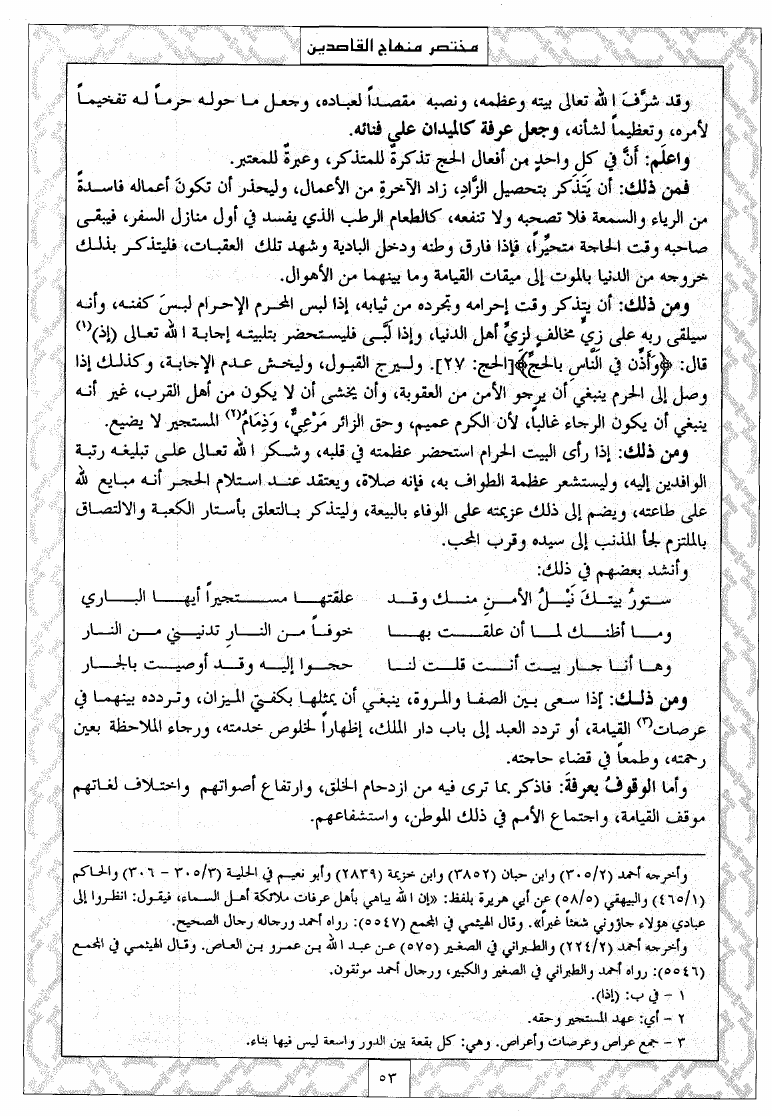 مختصر منهاج القاصدين
وقد شرَّفَ الله تعالى بيته وعظمه، ونصبه مقصداً لعباده، وجعل ما حوله حرماً له تفخيماً
لأمره، وتعظيماً لشأنه، وجعل عرفة كالميدان على فنائه.
واعلَم: أنَّ في كل واحدٍ من أفعال الحج تذكرةٌ للمتذكر، وعبرةٌ للمعتبر.
فمن ذلك: أن يَتَذَكر بتحصيل الزَّادِ، زاد الآخرةِ من الأعمال، وليحذر أن تكونَ أعماله فاسدةً
من الرياء والسمعة فلا تصحبه ولا تنفعه، كالطعام الرطب الذي يفسد في أول منازل السفر، فيبقى
صاحبه وقت الحاجة متحيِّراً، فإذا فارق وطنه ودخل البادية وشهد تلك العقبات، فليتذكر بذلك
خروجه من الدنيا بالموت إلى ميقات القيامة وما بينهما من الأهوال.
ومن ذلك: أن يتذكر وقت إحرامه وتجرده من ثيابه، إذا لبس المحرم الإحرام لبسَ كفنه، وأنه
سيلقى ربه على زيٍّ مخالفٍ لزيِّ أهل الدنيا، وإذا لَبَّى فليستحضر بتلبيته إجابة الله تعالى (إذ)(١)
قال: ﴿وَأَذِّن فِي النَّاسِ بِالحَجِّ﴾[الحج: ٢٧]. وليرج القبول، وليخش عدم الإجابة، وكذلك إذا
وصل إلى الحرم ينبغي أن يرجو الأمن من العقوبة، وأن يخشى أن لا يكون من أهل القرب، غير أنه
ينبغي أن يكون الرجاء غالباً، لأن الكرم عميم، وحق الزائر مَرْعِيٌّ، وَذِمَامُ(٢) المستجير لا يضيع.
ومن ذلك: إذا رأى البيت الحرام استحضر عظمته في قلبه، وشكر الله تعالى على تبليغه رتبة
الوافدين إليه، وليستشعر عظمة الطواف به، فإنه صلاة، ويعتقد عند استلام الحجر أنه مبايع لله
على طاعته، ويضم إلى ذلك عزيمته على الوفاء بالبيعة، وليتذكر بالتعلق بأستار الكعبة والالتصاق
بالملتزم لجأ المذنب إلى سيده وقرب المحب.
وأنشد بعضهم في ذلك:
ستورُ بيتكَ نَيْلُ الأمنِ منك وقد علقتها مستجيراً أيها الباري
وما أظنك لما أن علقت بها خوفاً من النارِ تدنيني من النار
وها أنا جار بيت أنت قلت لنا حجوا إليه وقد أوصيت بالجار
ومن ذلك: إذا سعى بين الصفا والمروة، ينبغي أن يمثلها بكفتي الميزان، وتردده بينهما في
عرصات(٣) القيامة، أو تردد العبد إلى باب دار الملك، إظهاراً لخلوص خدمته، ورجاء الملاحظة بعين
رحمته، وطمعاً في قضاء حاجته.
وأما الوقوفُ بعرفةَ: فاذكر بما ترى فيه من ازدحام الخلق، وارتفاع أصواتهم واختلاف لغاتهم
موقف القيامة، واجتماع الأمم في ذلك الموطن، واستشفاعهم.
وأخرجه أحمد (٣٠٥/٢) وابن حبان (٣٨٥٢) وابن خزيمة (٢٨٣٩) وأبو نعيم في الحلية (٣٠٥/٣ - ٣٠٦) والحاكم
(٤٦٥/١) والبيهقي (٥٨/٥) عن أبي هريرة بلفظ: «إن الله يباهي بأهل عرفات ملائكة أهل السماء، فيقول: انظروا إلى
عبادي هؤلاء جاؤوني شعثاً غبراً». وقال الهيثمي في المجمع (٥٥٤٧): رواه أحمد ورجاله رجال الصحيح.
وأخرجه أحمد (٢٢٤/٢) والطبراني في الصغير (٥٧٥) عن عبد الله بن عمرو بن العاص. وقال الهيثمي في المجمع
(٥٥٤٦): رواه أحمد والطبراني في الصغير والكبير، ورجال أحمد موثقون.
١ - في ب: (إذا).
٢ - أي: عهد المستجير وحقه.
٣ - جمع عراص وعرصات وأعراص. وهي: كل بقعة بين الدور واسعة ليس فيها بناء.
٥٣